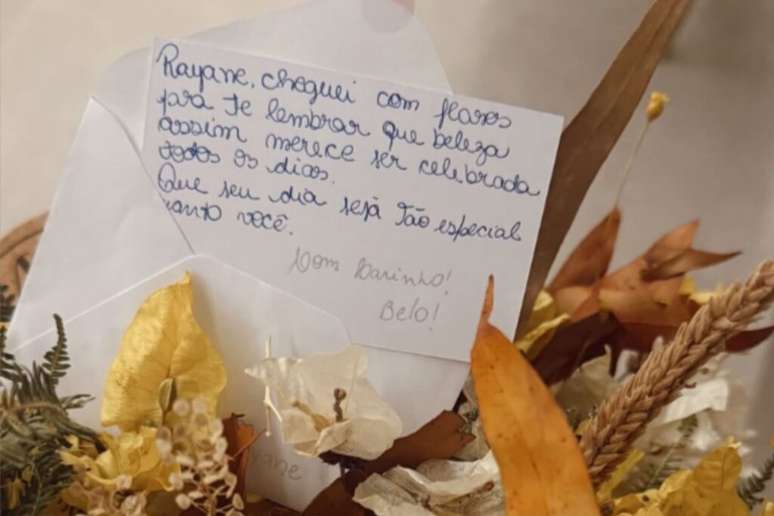 Rayane, cheguei com flores
pra te lembrar que beleza
assim merece ser celebrada
todos os dias.
Que seu dia seja tão especial
quanto você.
Com Carinho!
Belo!